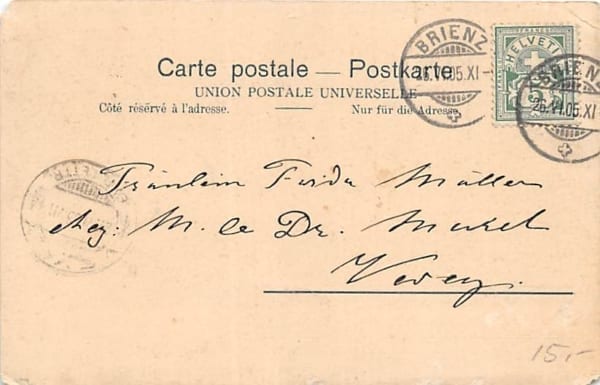 BRIENZ
26.VI.05.XI-
HELVETIA
FRANCO
5
BRIENZ
26.VI.05.XI
Carte postale — Postkarte
UNION POSTALE UNIVERSELLE
Côté réservé à l'adresse. Nur für die Adresse.
Fräulein Frida Müller
chez M. le Dr. Muret
Vevey.
15,-